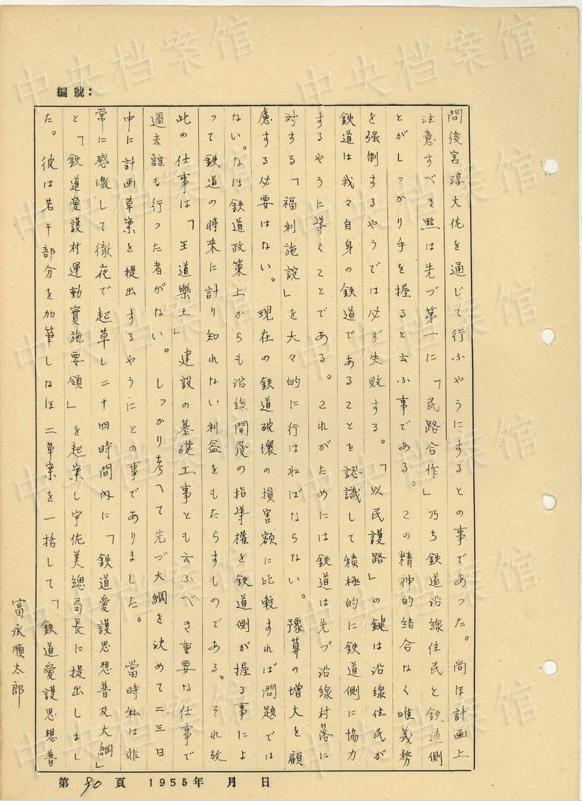 編號：
問後宮淳大佐を通じて行ふやうにするとの事であった。尚ほ計画上
注意すべき点は先づ第一に「民路合作」乃ち鉄道沿線住民と鉄道側
とがしっかり手を握ると云ふ事である。この精神的結合なく唯義務
を强制するやうでは必ず失敗する。「以民護路」の鍵は沿線住民が
鉄道は我々自身の鉄道であることを認識して積極的に鉄道側に協力
するやうに導くことである。これがためには鉄道は先づ沿線村落に
対する「福利施設」を大々的に行はねばならない。豫算の増大を顧
慮する必要はない。現在の鉄道破壊の損害額に比較すれば問題では
ない。なほ鉄道政策上からも沿線開発の指導権を鉄道側が握る事によ
って鉄道の將来に計り知れない利益をもたらすものである。それ故
此の仕事は「王道樂土」建設の基礎工事とも云ふべき重要な仕事で
過去誰も行った者がない。しっかり考へて先づ大綱を決めて二三日
中に計画草案を提出するやうにとの事でありました。當時私は非
常に感激して徹夜で起草し二十四時間內に「鉄道愛護思想普及大綱」
と「鉄道愛護村運動實施要領」を起案し宇佐美總局長に提出しまし
た。彼は若干部分を加筆しなほ二草案を一括して「鉄道愛護思想普
富永順太郎
第90頁 1955年 月 日
中央档案馆